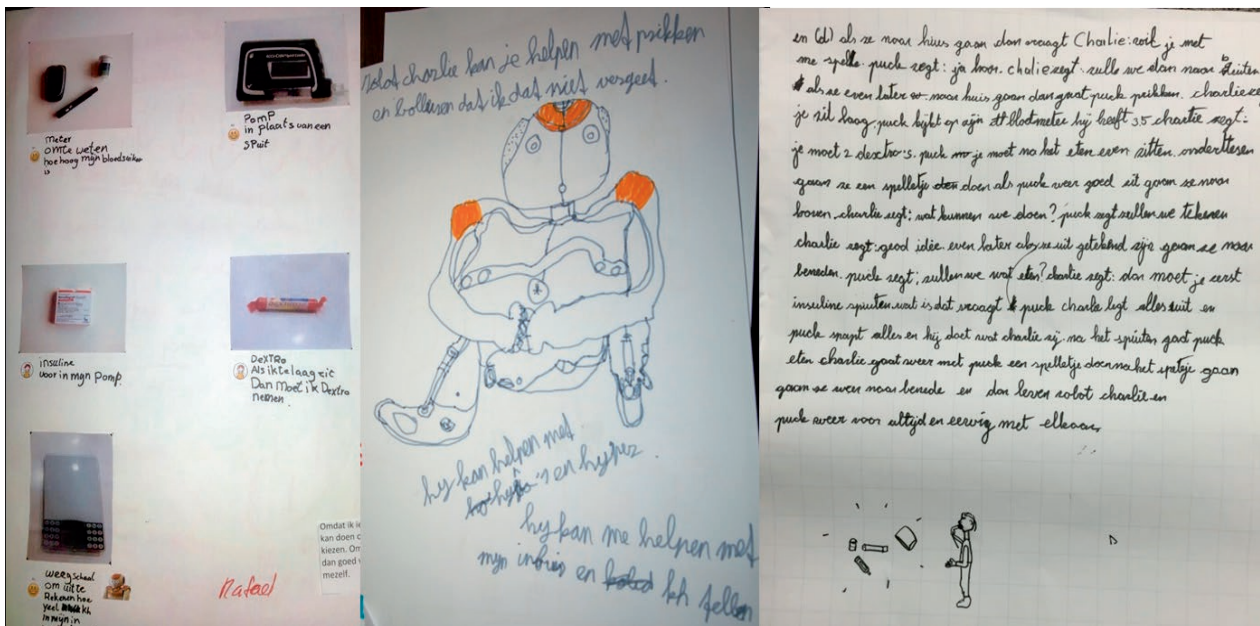 meter
om te weten
hoe hoog mijn bloedsuiker
is
Pomp
in plaats van een
spuit
insuline
voor in mijn Pomp.
DEXTRO
Als ik te laag zit
Dan moet ik Dextro
nemen.
weegschaal
om uit te
Rekenen hoe
veel kh
in mijn
Rafael
Omdat ik
kan doen
kiezen. Om
dan goed
mezelf.
robot charlie kan je helpen met prikken
en bolussen dat ik dat niet vergeet.
hij kan helpen met
hypo's en hyper
hij kan me helpen met
mijn en kh tellen
en (als) als ze naar huis gaan dan vraagt Charlie: wil je met
me spelle. puck zegt: ja hoor. chalie zegt. zulle we dan naar buiten
als ze even later naar huis gaan dan gaat puck prikken. charlie
je zit laag. puck kijkt op zijn blodmeter hij heeft 3.5 charlie zegt:
je moet 2 dextro's. puck je moet na het eten even zitten. ondertesen
gaan ze een spelletje doen als puck weer goed zit gaan ze naar
boven. charlie zegt: wat kunnen we doen? puck zegt zullen we tekenen
charlie zegt: good idee. even later als ze uit getekend zijn gaan ze naar
beneden. puck zegt; zullen we wat eten? charlie zegt: dan moet je eerst
insuline spuiten. wat is dat vraagt puck charlie legt alles uit en
puck snapt alles en hij doet wat charlie zij. na het spuiten gaat puck
eten charlie gaat weer met puck een spelletje doen na het gaan
gaan ze weer naar benede en dan leven robot charlie en
puck weer voor altijd en eerwig met elkaar